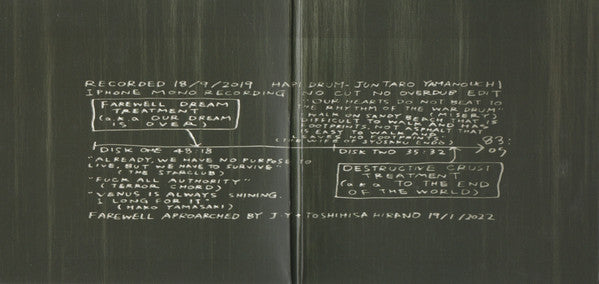 RECORDED 18/9/2019 HAPI DRUM - JUNTARO YAMANOUCHI
IPHONE MONO RECORDING NO CUT NO OVERDUB EDIT
FAREWELL DREAM
TREATMENT
(a.k.a OUR DREAM
IS OVER)
"OUR HEARTS DO NOT BEAT TO
THE RHYTHM OF THE WAR DRUM"
(MISERY)
WALK ON SANDY BEACH THAT IS
DIFFICULT TO WALK AND HAS
FOOTPRINTS, NOT ASPHALT THAT
IS EASY TO WALK AND
LEAVES NO FOOTPRINTS
(THE WIFE OF SYUSAKU ENDO)
DISK ONE 48:18
DISK TWO 35:32
83:
"ALREADY, WE HAVE NO PURPOSE TO
LIVE, BUT WE HAVE TO SURVIVE"
(THE STARCLUB)
"FUCK ALL AUTHORITY"
(TERROR CHORD)
"VENUS IS ALWAYS SHINING.
I LONG FOR IT"
(HAKO YAMASAKI)
DESTRUCTIVE CRUST
TREATMENT
(a.k.a TO THE END
OF THE WORLD)
FAREWELL APROARCHED BY J.Y + TOSHIHISA HIRANO 19/1/2022